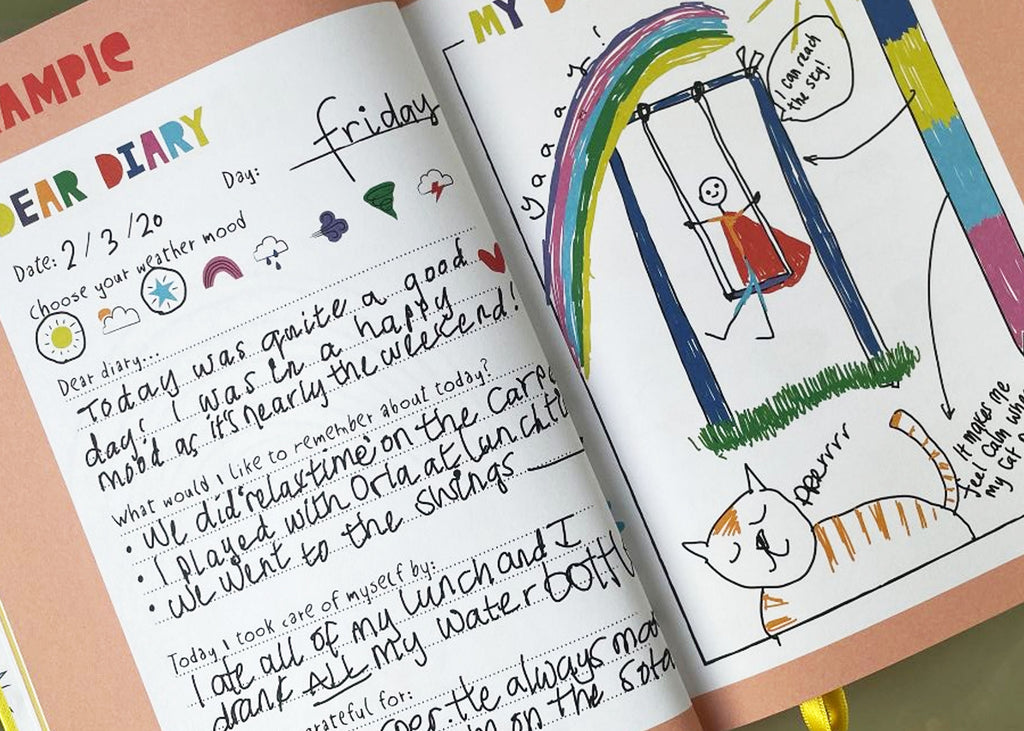 AMPLE
DEAR DIARY
Day: friday
Date: 2/3/20
Choose your weather mood
Dear diary...
Today was quite a good
day! I was in a happy
mood as it's nearly the weekend!
What would I like to remember about today?
• We did 'relaxtime' on the Carpe
• I played with Orla at lunchti
• We went to the swings
Today I took care of myself by:
I ate all of my lunch and I
drank ALL my water bottl
rateful for:
He always ma
on the sofa
MY
Yaaaay!
I can reach
the sky!
prrrrr
It makes me
feel calm whe
my cat